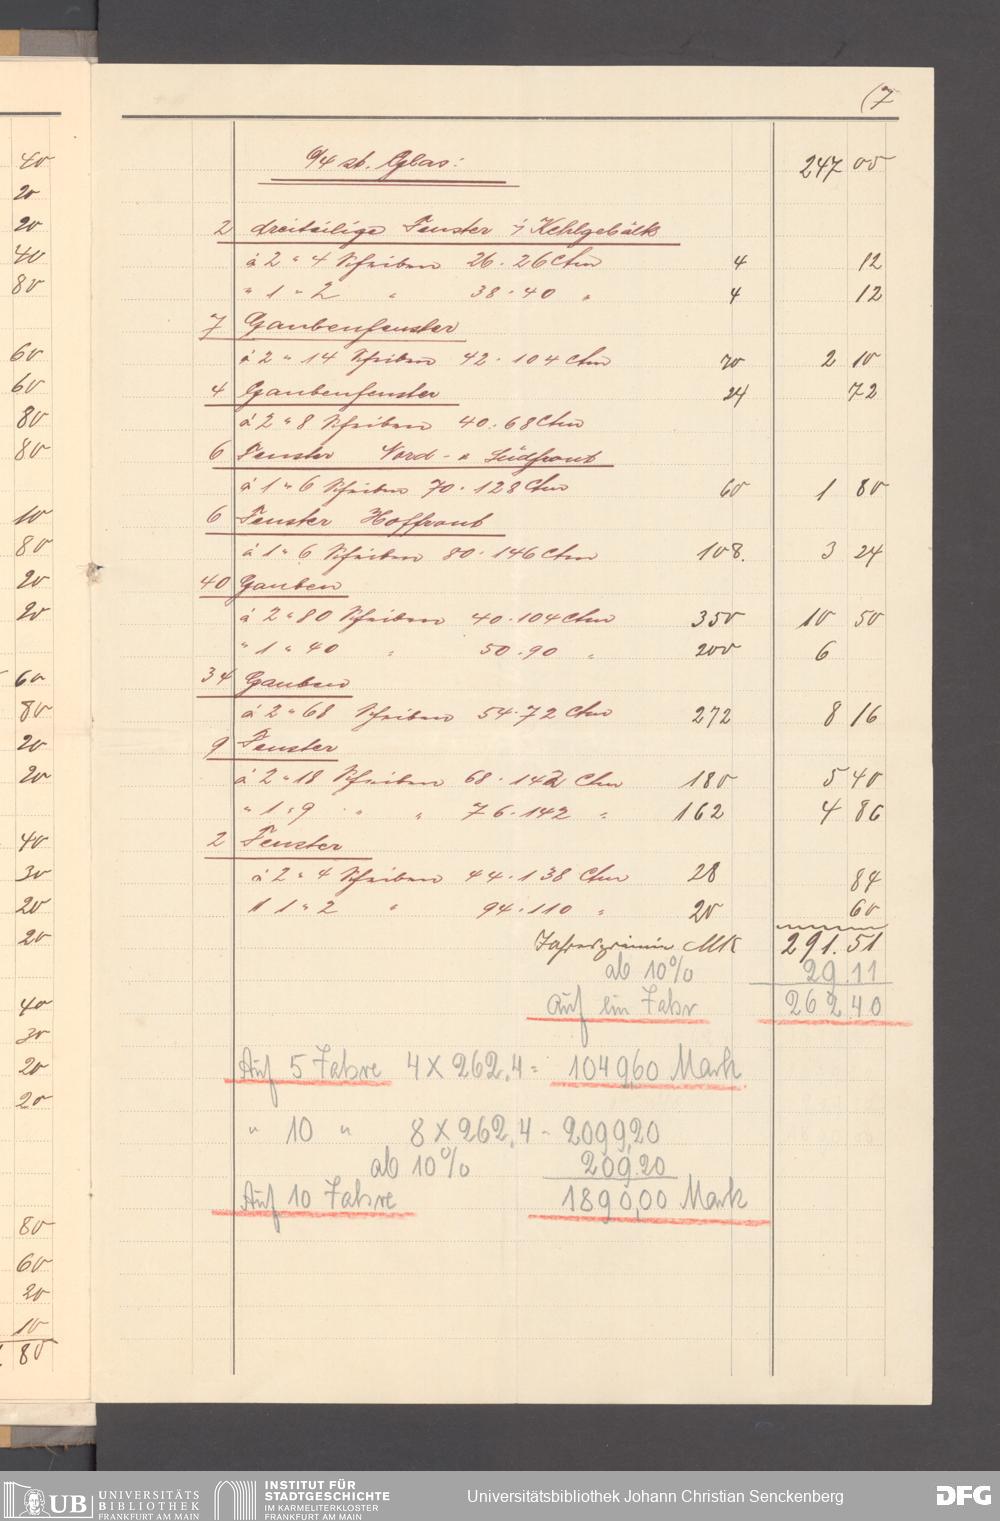 (7
4/4 st. Glas: 247 05
2 dreiteilige Fenster i/ Kehlgebälk
à 2 " 4 Scheiben 26 · 26 Ctm 4 12
" 1 " 2 " 38 · 40 " 4 12
7 Gaubenfenster
à 2 " 14 Scheiben 42 · 104 Ctm 70 2 10
4 Gaubenfenster 24 72
à 2 " 8 Scheiben 40 · 68 Ctm
6 Fenster Nord- u Südfront
à 1 " 6 Scheiben 70 · 128 Ctm 60 1 80
6 Fenster Hoffront
à 1 " 6 Scheiben 80 · 146 Ctm 108. 3 24
40 Gauben
à 2 " 80 Scheiben 40 · 104 Ctm 350 10 50
" 1 " 40 " 50 · 90 " 200 6
34 Gauben
à 2 " 68 Scheiben 54 · 72 Ctm 272 8 16
9 Fenster
à 2 " 18 Scheiben 68 · 142 Ctm 180 5 40
" 1 " 9 " " 76 · 142 " 162 4 86
2 Fenster
à 2 " 4 Scheiben 44 · 138 Ctm 28 84
" 1 " 2 " 94 · 110 " 20 60
Jahresprämie MK 291.51
ab 10% 29.11
Auf ein Jahr 262.40
Auf 5 Jahre 4 X 262.4 = 1049,60 Mark
" 10 " 8 X 262,4 - 2099,20
ab 10% 209.20
Auf 10 Jahre 1890,00 Mark
40
20
20
40
80
60
60
80
80
10
80
20
20
60
80
20
20
40
30
20
20
40
30
20
20
80
60
20
10
80
UB UNIVERSITÄTS
BIBLIOTHEK
FRANKFURT AM MAIN
INSTITUT FÜR
STADTGESCHICHTE
IM KARMELITERKLOSTER
FRANKFURT AM MAIN
Universitätsbibliothek Johann Christian Senckenberg
DFG